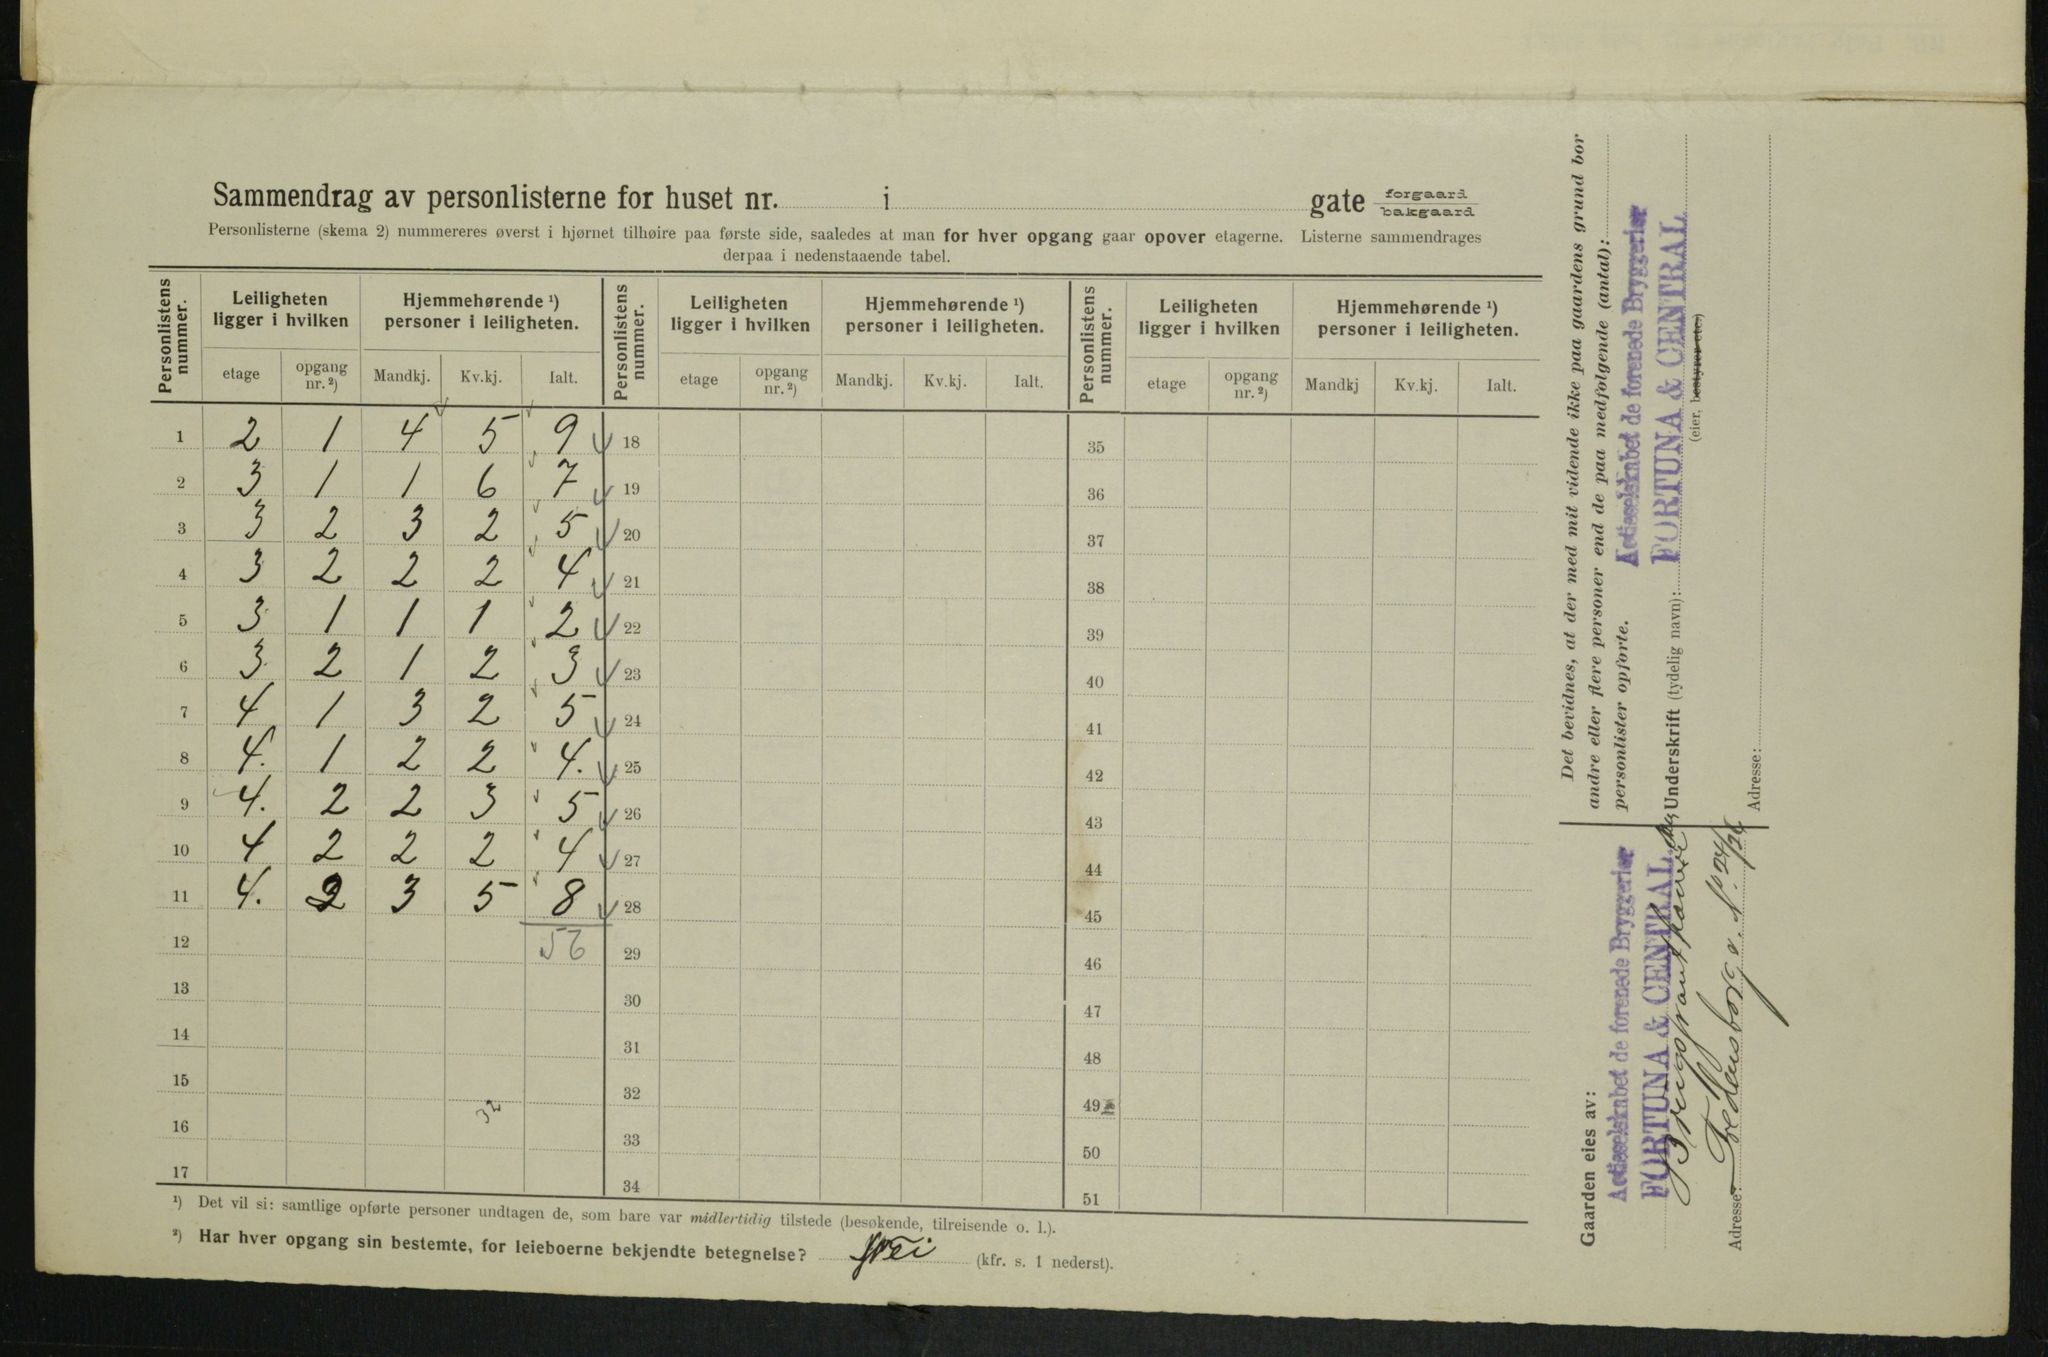 Sammendrag av personlisterne for huset nr. i gate forgaard bakgaard
Personlisterne (skema 2) nummereres øverst i hjørnet tilhøire paa første side, saaledes at man for hver opgang gaar opover etagerne. Listerne sammendrages
derpaa i nedenstaaende tabel.
Personlistens nummer. Leiligheten ligger i hvilken Hjemmehørende ¹) personer i leiligheten. Personlistens nummer. Leiligheten ligger i hvilken Hjemmehørende ¹) personer i leiligheten. Personlistens nummer. Leiligheten ligger i hvilken Hjemmehørende ¹) personer i leiligheten.
etage opgang nr. ²) Mandkj. Kv.kj. Ialt. etage opgang nr. ²) Mandkj. Kv.kj. Ialt. etage opgang nr. ²) Mandkj Kv.kj. Ialt.
1 2 1 4 5 9 18 35
2 3 1 1 6 7 19 36
3 3 2 3 2 5 20 37
4 3 2 2 2 4 21 38
5 3 1 1 1 2 22 39
6 3 2 1 2 3 23 40
7 4 1 3 2 5 24 41
8 4. 1 2 2 4. 25 42
9 4. 2 2 3 5 26 43
10 4 2 2 2 4 27 44
11 4. 2 3 5 8 28 45
12 56 29 46
13 30 47
14 31 48
15 32 49
16 32 33 50
17 34 51
¹) Det vil si: samtlige opførte personer undtagen de, som bare var midlertidig tilstede (besøkende, tilreisende o. l.).
²) Har hver opgang sin bestemte, for leieboerne bekjendte betegnelse? Nei (kfr. s. 1 nederst).
Det bevidnes, at der med mit vidende ikke paa gaardens grund bor
andre eller flere personer end de paa medfølgende (antal):
personlister opførte.
Actieselskabet de forenede Bryggerier
FORTUNA & CENTRAL
Underskrift (tydelig navn):
(eier, bestyrer etc.)
Adresse:
Gaarden eies av:
Actieselskabet de forenede Bryggerier
FORTUNA & CENTRAL
Adresse: Fredensborgv. No. 24/26